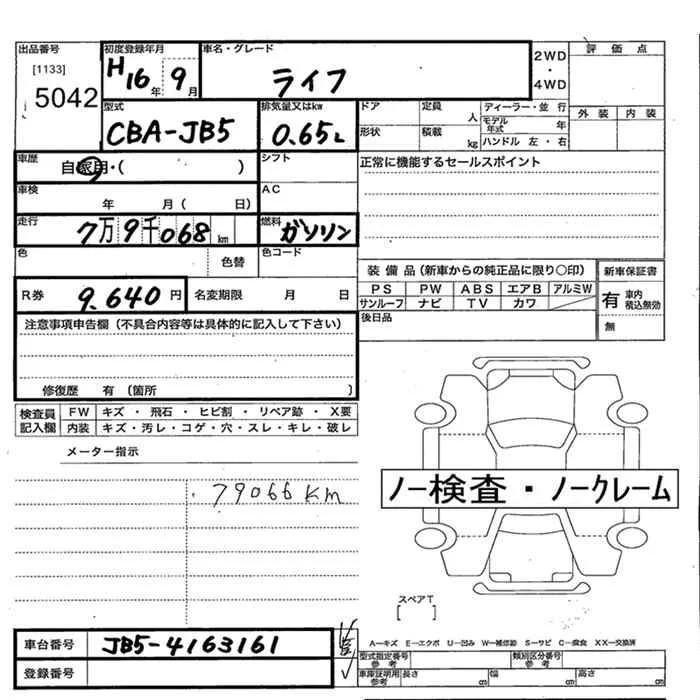 出品番号 初度登録年月 車名・グレード 評価点
[1133] H16年 9月 ライフ 2WD・4WD
5042 外装 内装
型式 排気量又はkw ドア 定員 人 ディーラー・並行
CBA-JB5 0.65L 形状 積載 kg モデル年式 年
ハンドル 左・右
車歴 自家用・( ) シフト 正常に機能するセールスポイント
車検 年 月( 日) AC
走行 7万9千068km 燃料 ガソリン
色 色替 色コード
装備品(新車からの純正品に限り○印) 新車保証書
R券 9.640円 名変期限 月 日 PS PW ABS エアB アルミW 有 車内積込無効
サンルーフ ナビ TV カワ
注意事項申告欄(不具合内容等は具体的に記入して下さい) 後日品 無
修復歴 有 (箇所 )
検査員記入欄 FW キズ・飛石・ヒビ割・リペア跡・X要
内装 キズ・汚レ・コゲ・穴・スレ・キレ・破レ
メーター指示
79066km
ノー検査・ノークレーム
スペアT
[ ]
車台番号 JB5-4163161
A-キズ E-エクボ U-凹み W-補修跡 S-サビ C-腐食 XX-交換済
型式指定番号 参考 類別区分番号 参考
登録番号 車庫証明用 参考 長さ cm 幅 cm 高さ cm